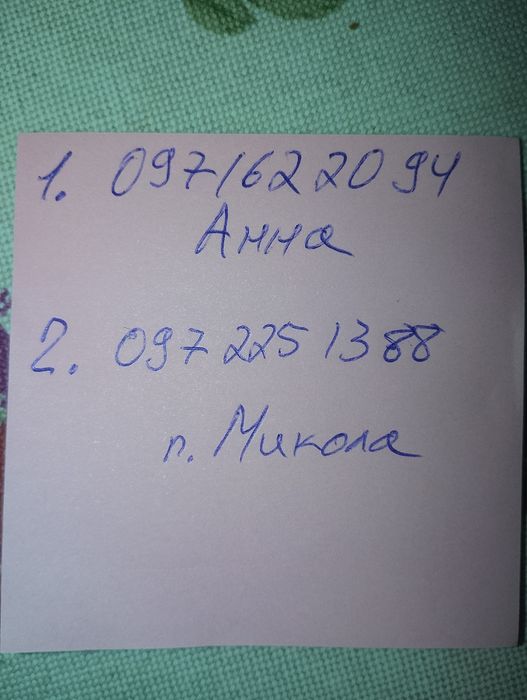 1. 0971622094
Анна
2. 097 225 1388
п. Микола